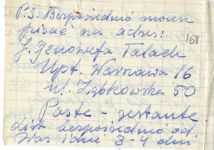 P.S. Bezpośrednio można
pisać na adres:
168
J. Genowefa Tatach
Upt. Warszawa 16
ul. Ząbkowska 50
Poste-restante
list bezpośrednio od
Was idzie 3-4 dni